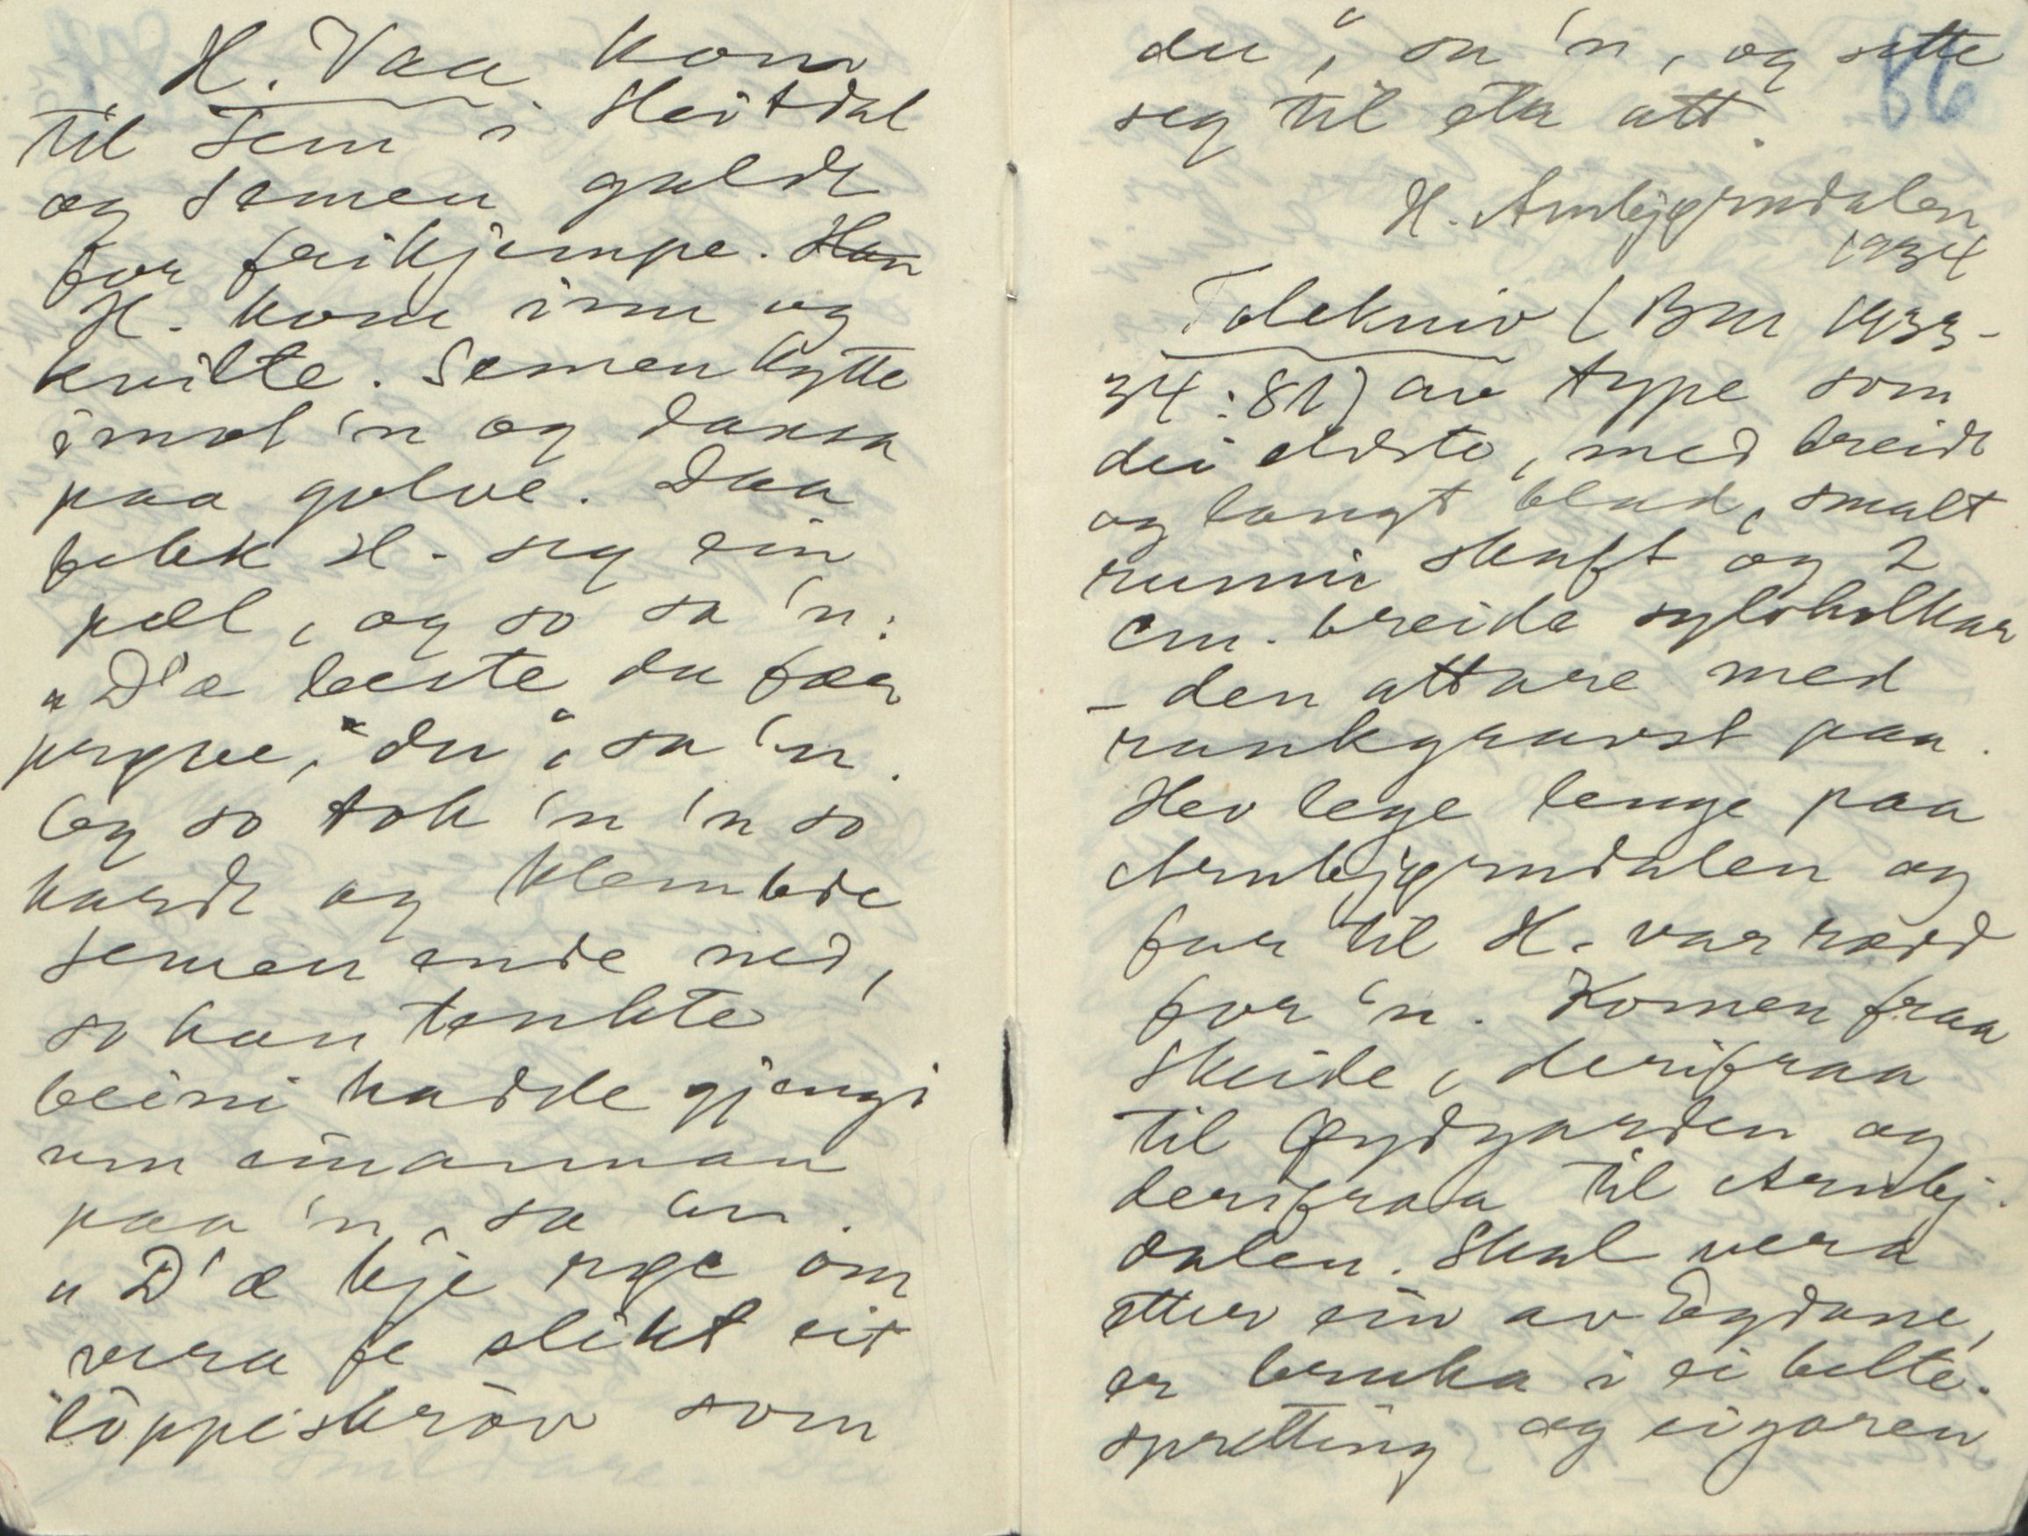 H. Vaa kom
til Sem i Heitdal
og Semen galdt
for frikjempe. Han
H. kom inn og
kvilte. Semen hytte
imot 'n og dansa
paa golve. Daa
fekk H. seg ein
pæl, og so sa 'n:
"D'æ beste du fær
prøve, du", sa 'n.
Og so tok 'n 'n so
hardt og klembde
Semen ende ned,
so han tenkte
beini hadde gjengi
um einannan
paa 'n, sa 'n.
"D'æ kje røe om
vera fe slikt eit
löppeskröv som
du", sa 'n, og sette
seg til eta att.
H. Arnbjørndalen
1934
86
Tolekniv (Bm 1933-
34:81) av type som
dei eldste, med breidt
og langt blad, smalt
runni skaft og 2
cm. breide sylvholkar
- den attare med
rankgravst paa.
Hev lege lenge paa
Arnbjørndalen og
far til H. var rædd
for 'n. Komen fraa
Skeide, derifraa
til Øydgarden og
derifraa til Arnbj.
dalen. Skal vera
etter ein av Egdane,
er bruka i ei belte-
spretting og eigaren